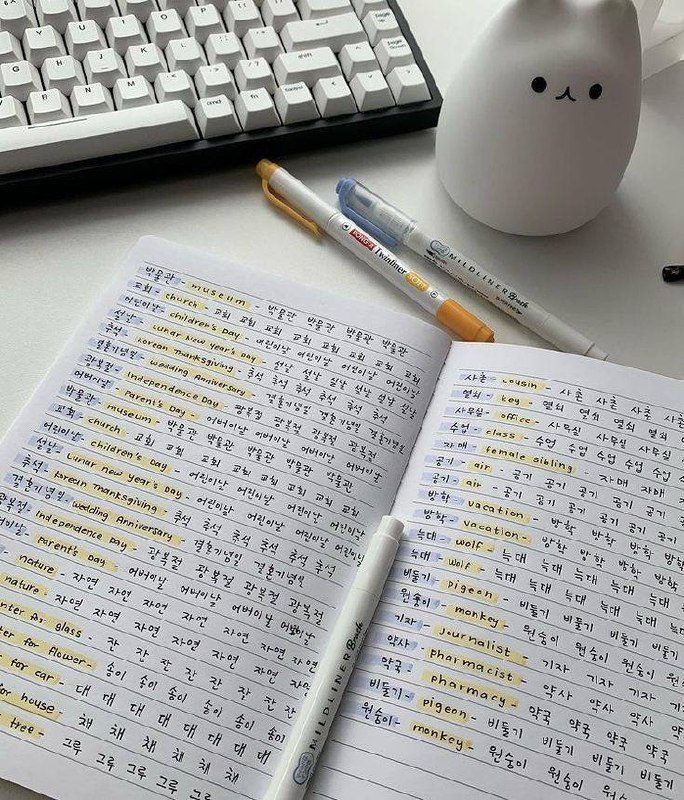 Y U I O P
G H J K L
B N M
shift
cmd fn control
PONGS Twinliner SOFT
MILDLINER Brush
박물관 - museum - 박물관 박물관 박물관 박물관
교회 - church - 교회 교회 교회 교회 교회 교회 교회
어린이날 - children's Day - 어린이날 어린이날 어린이날 어린이날
설날 - Lunar New Year's Day - 설날 설날 설날 설날 설날 설날
추석 - Korean Thanksgiving - 추석 추석 추석 추석 추석 추석
결혼기념일 - Wedding Anniversary - 결혼기념일 결혼기념일 결혼기념일
광복절 - Independence Day - 광복절 광복절 광복절 광복절
어버이날 - Parent's Day - 어버이날 어버이날 어버이날 어버이날
박물관 - museum - 박물관 박물관 박물관 박물관 박물관
교회 - church - 교회 교회 교회 교회 교회 교회 교회
어린이날 - children's Day - 어린이날 어린이날 어린이날 어린이날
설날 - Lunar new year's Day - 설날 설날 설날 설날
추석 - Korean Thanksgiving - 추석 추석 추석 추석 추석 추석
결혼기념일 - Wedding Anniversary - 결혼기념일 결혼기념일
광복절 - Independence Day - 광복절 광복절 광복절 광복절
Parent's Day - 어버이날 어버이날 어버이날 어버이날
nature - 자연 자연 자연 자연 자연 자연 자연
nature - 자연 자연 자연 자연 자연 자연 자연
for glass - 잔 잔 잔 잔 잔 잔 잔
for flower - 송이 송이 송이 송이 송이 송이
for car - 대 대 대 대 대 대 대 대
for house - 채 채 채 채 채 채
tree - 그루 그루 그루 그루 그루
MILDLINER Brush
사촌 - cousin - 사촌 사촌 사촌 사촌
열쇠 - key - 열쇠 열쇠 열쇠 열쇠 열쇠
사무실 - office - 사무실 사무실 사무실
수업 - class - 수업 수업 수업 수업 수업
자매 - female sibling - 자매 자매
공기 - air - 공기 공기 공기 공기 공기
공기 - air - 공기 공기 공기 공기 공기
방학 - vacation - 방학 방학 방학 방학
방학 - vacation - 방학 방학 방학 방학
늑대 - wolf - 늑대 늑대 늑대 늑대 늑대
늑대 - wolf - 늑대 늑대 늑대 늑대 늑대
비둘기 - pigeon - 비둘기 비둘기 비둘기
원숭이 - monkey - 원숭이 원숭이 원숭이
기자 - journalist - 기자 기자 기자
약사 - pharmacist - 약사 약사 약사
약국 - pharmacy - 약국 약국 약국 약국
비둘기 - pigeon - 비둘기 비둘기 비둘기
원숭이 - monkey - 원숭이 원숭이 원숭이